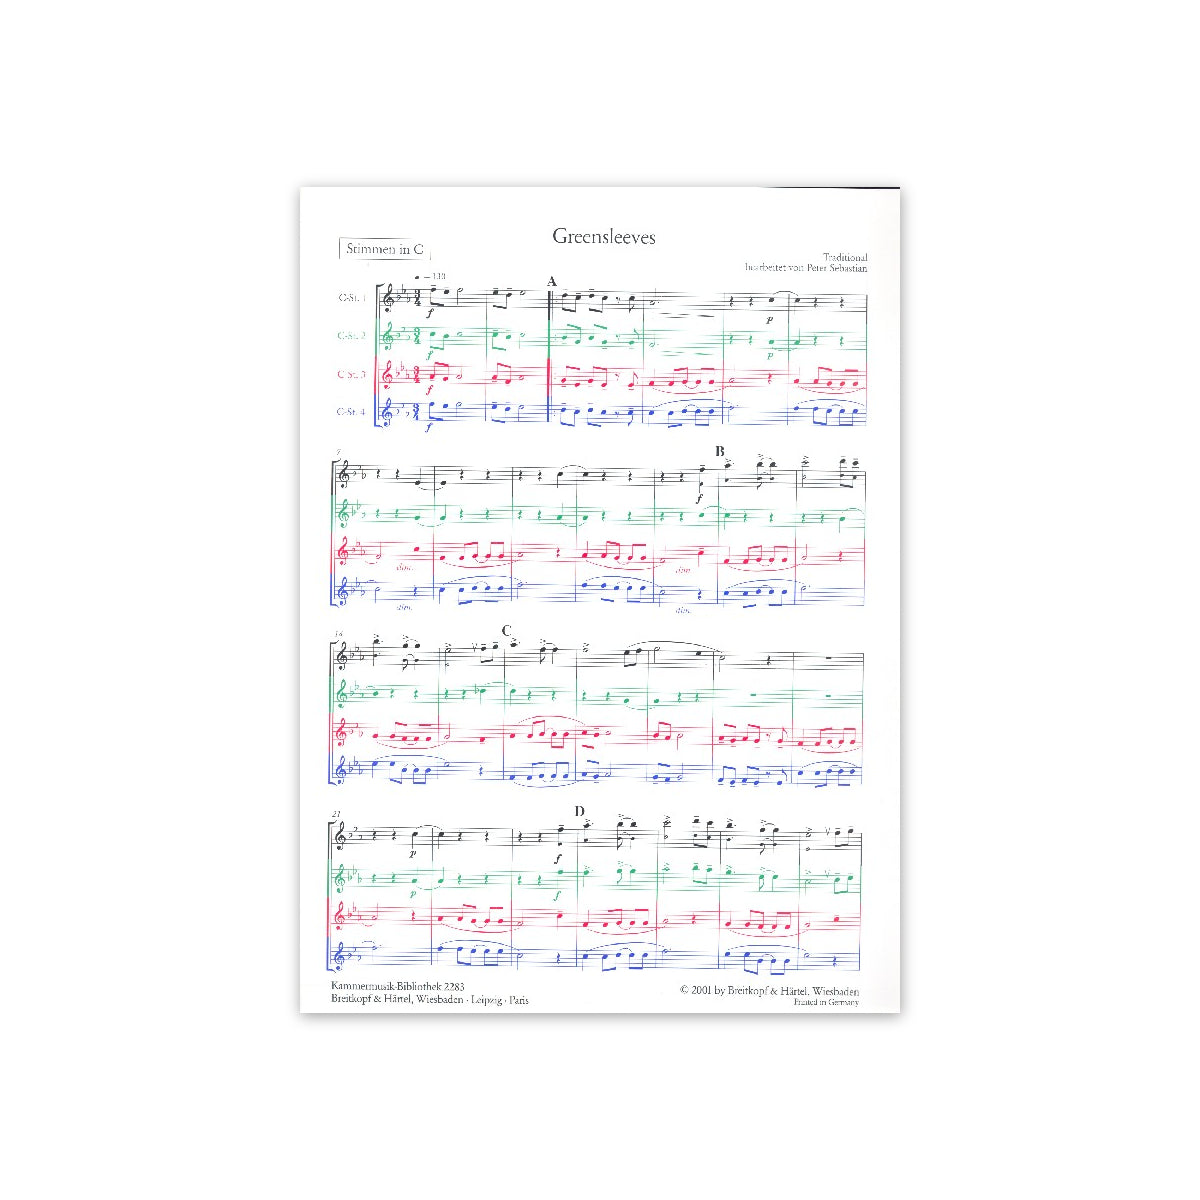 Greensleeves
Stimmen in C
Traditional
bearbeitet von Peter Sebastian
A
C-St. 1
f
p
C-St. 2
f
p
C-St. 3
f
C-St. 4
f
7
B
f
dim.
dim.
dim.
dim.
C
21
D
p
f
p
f
Kammermusik-Bibliothek 2283
Breitkopf & Härtel, Wiesbaden · Leipzig · Paris
© 2001 by Breitkopf & Härtel, Wiesbaden
Printed in Germany